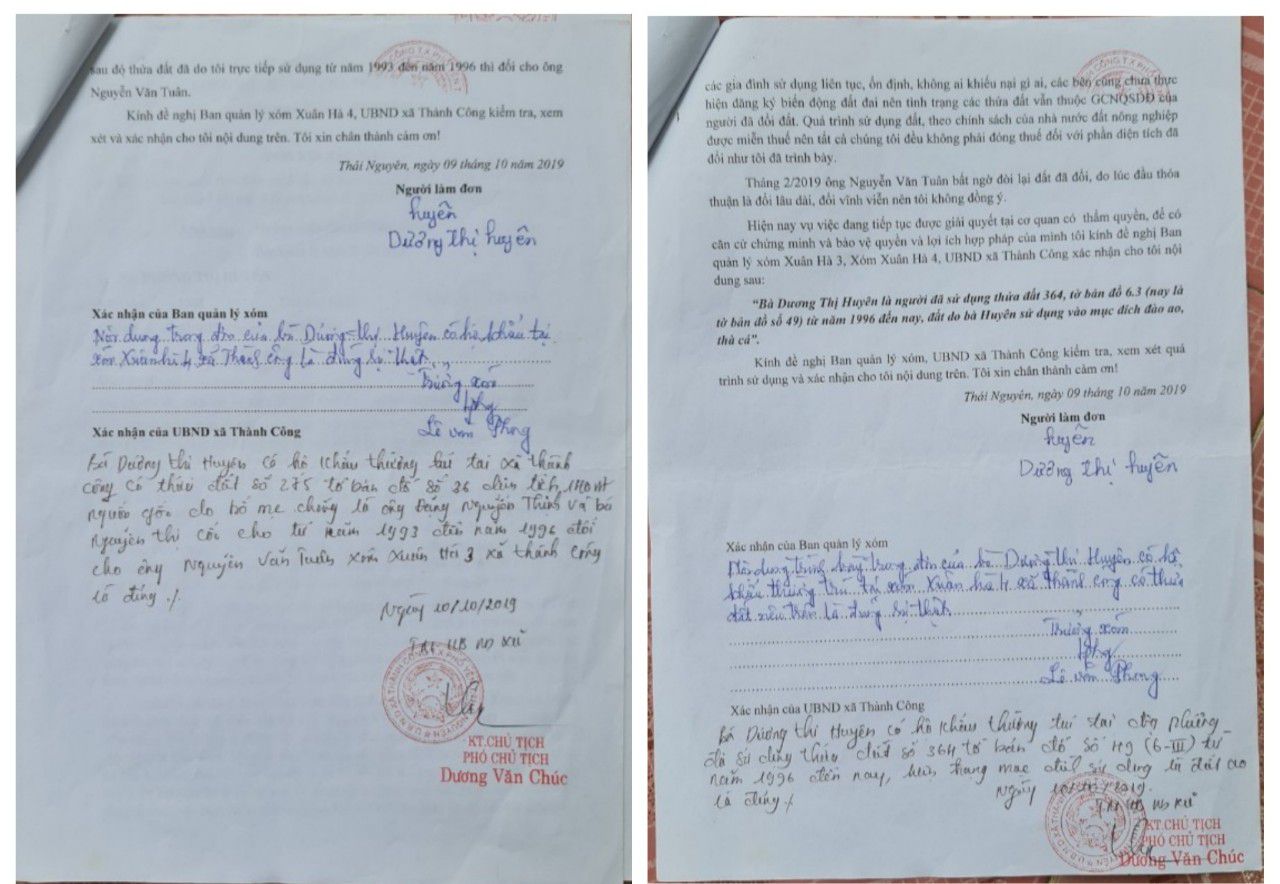 sau đó thửa đất đã do tôi trực tiếp sử dụng từ năm 1993 đến năm 1996 thì đổi cho ông
Nguyễn Văn Tuân.
Kính đề nghị Ban quản lý xóm Xuân Hà 4, UBND xã Thành Công kiểm tra, xem
xét và xác nhận cho tôi nội dung trên. Tôi xin chân thành cảm ơn!
Thái Nguyên, ngày 09 tháng 10 năm 2019
Người làm đơn
huyên
Dương thị huyên
Xác nhận của Ban quản lý xóm
Nội dung trong đơn của bà Dương thị Huyên có hộ khẩu tại
xóm Xuân hà 4 xã Thành công là đúng sự thật
Trưởng xóm
Lê văn Phong
Xác nhận của UBND xã Thành Công
Bà Dương thị Huyên có hộ khẩu thường trú tại xã thành
công có thửa đất số 275 tờ bản đồ số 36 diện tích
nguồn gốc do bố mẹ chồng là ông Đặng Nguyên Thịnh và bà
Nguyễn thị cho từ năm 1993 đến năm 1996 đổi
cho ông Nguyễn Văn Tuân xóm Xuân Hà 3 xã thành công
là đúng ./.
Ngày 10/10/2019
TM UB ND xã
KT.CHỦ TỊCH
PHÓ CHỦ TỊCH
Dương Văn Chúc
các gia đình sử dụng liên tục, ổn định, không ai khiếu nại gì ai, các bên cũng chưa thực
hiện đăng ký biến động đất đai nên tình trạng các thửa đất vẫn thuộc GCNQSDĐ của
người đã đổi đất. Quá trình sử dụng đất, theo chính sách của nhà nước đất nông nghiệp
được miễn thuế nên tất cả chúng tôi đều không phải đóng thuế đối với phần diện tích đã
đổi như tôi đã trình bày.
Tháng 2/2019 ông Nguyễn Văn Tuân bất ngờ đòi lại đất đã đổi, do lúc đầu thỏa
thuận là đổi lâu dài, đổi vĩnh viễn nên tôi không đồng ý.
Hiện nay vụ việc đang tiếp tục được giải quyết tại cơ quan có thẩm quyền, để có
căn cứ chứng minh và bảo vệ quyền và lợi ích hợp pháp của mình tôi kính đề nghị Ban
quản lý xóm Xuân Hà 3, Xóm Xuân Hà 4, UBND xã Thành Công xác nhận cho tôi nội
dung sau:
“Bà Dương Thị Huyên là người đã sử dụng thửa đất 364, tờ bản đồ 6.3 (nay là
tờ bản đồ số 49) từ năm 1996 đến nay, đất do bà Huyên sử dụng vào mục đích đào ao,
thả cá”.
Kính đề nghị Ban quản lý xóm, UBND xã Thành Công kiểm tra, xem xét quá
trình sử dụng và xác nhận cho tôi nội dung trên. Tôi xin chân thành cảm ơn!
Thái Nguyên, ngày 09 tháng 10 năm 2019
Người làm đơn
huyên
Dương thị huyên
Xác nhận của Ban quản lý xóm
Nội dung trình bày trong đơn của bà Dương thị Huyên có hộ
khẩu thường trú tại xóm Xuân hà 4 xã Thành công có thửa
đất nêu trên là đúng sự thật
Trưởng xóm
Lê văn Phong
Xác nhận của UBND xã Thành Công
Bà Dương thị Huyên có hộ khẩu thường trú tại địa phương
đã sử dụng thửa đất số 364 tờ bản đồ số 49 (6-III) từ
năm 1996 đến nay, hiện trạng mục đích sử dụng là đất ao
là đúng ./.
Ngày 10/10/2019.
TM UB ND xã
KT.CHỦ TỊCH
PHÓ CHỦ TỊCH
Dương Văn Chúc